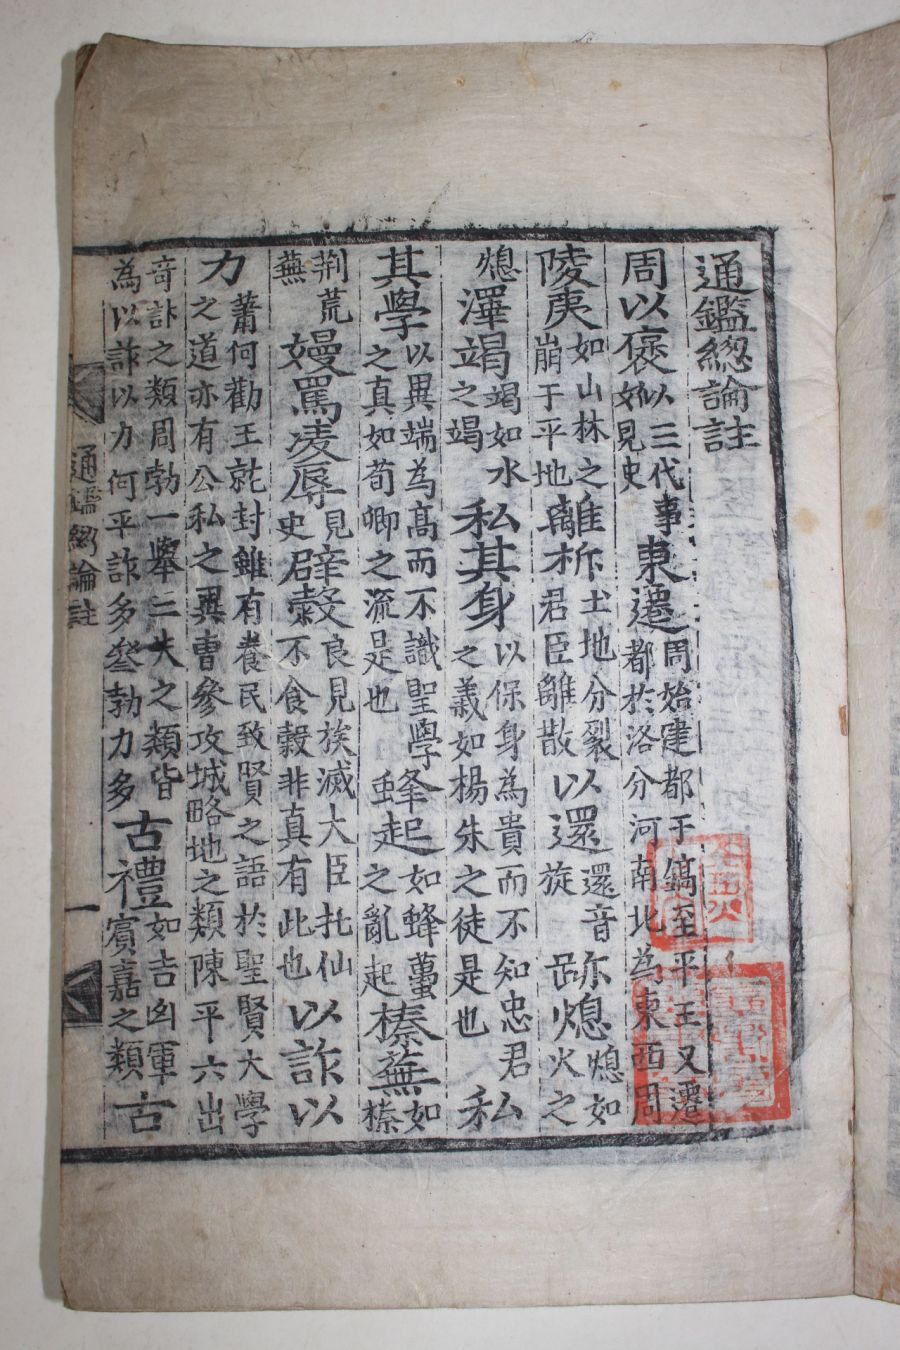 通鑑緫論註
周以褒姒以三代事見史東遷周始建都于鎬至平王又遷都於洛分河南北為東西周
陵夷如山林之崩于平地離析土地分裂君臣離散以還還音旋跡熄熄如火之
熄澤竭竭如水之竭私其身以保身為貴而不知忠君之義如楊朱之徒是也私
其學以異端為高而不識聖學之真如荀卿之流是也蜂起如蜂蠆之亂起榛蕪如榛
荆荒蕪嫚罵凌辱見史辟糓良見族滅大臣托仙不食糓非真有此也以詐以
力蕭何勸王就封雖有養民致賢之語於聖賢大學之道亦有公私之異曹參攻城略地之類陳平六出
竒計之類周勃一舉二失之類皆為以詐以力何平詐多叅勃力多古禮如吉凶軍賓嘉之類古
通鑑緫論註
一